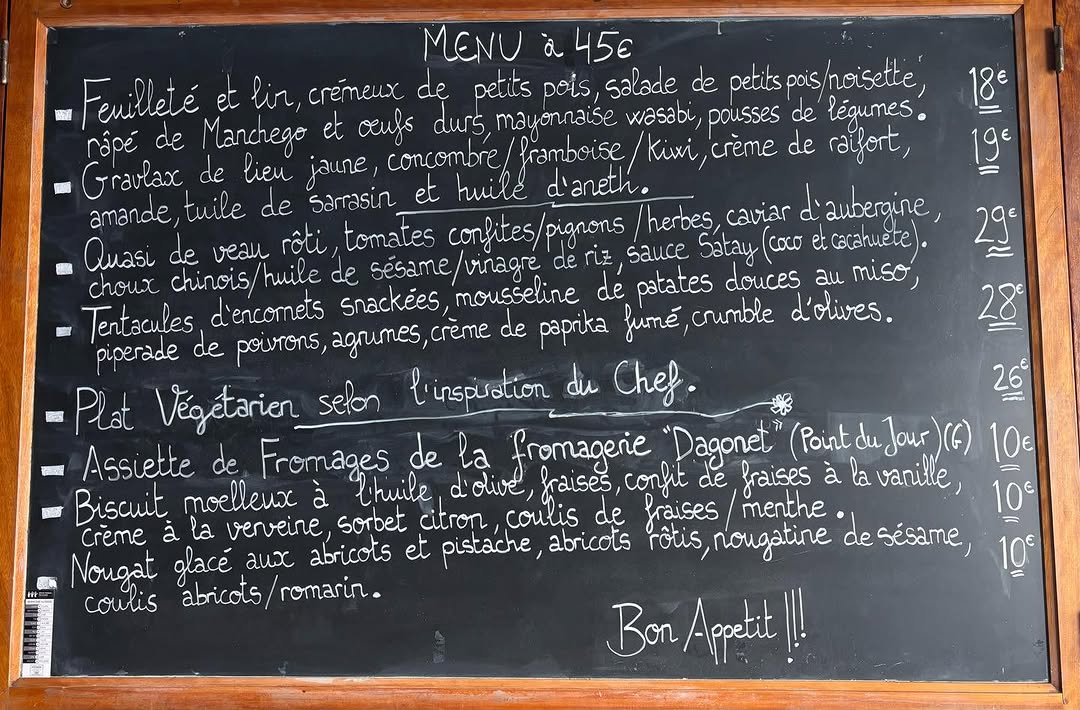 MENU à 45€
Feuilleté et lin, crémeux de petits pois, salade de petits pois/noisette, 18€
râpé de Manchego et œufs durs, mayonnaise wasabi, pousses de légumes.
Gravlax de lieu jaune, concombre/framboise/Kiwi, crème de raifort, 19€
amande, tuile de sarrasin et huile d'aneth.
Quasi de veau rôti, tomates confites/pignons/herbes, caviar d'aubergine, 29€
choux chinois/huile de sésame/vinagre de riz, sauce Satay (coco et cacahuète).
Tentacules d'encornets snackées, mousseline de patates douces au miso, 28€
piperade de poivrons, agrumes, crème de paprika fumé, crumble d'olives.
Plat Végétarien selon l'inspiration du Chef. 26€
Assiette de Fromages de la fromagerie "Dagonet" (Point du Jour) (G) 10€
Biscuit moelleux à l'huile d'olive, fraises, confit de fraises à la vanille, 10€
crème à la verveine, sorbet citron, coulis de fraises/menthe.
Nougat glacé aux abricots et pistache, abricots rôtis, nougatine de sésame, 10€
coulis abricots/romarin.
Bon Appetit !!!